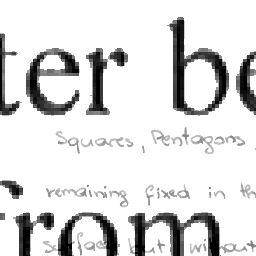 ter be
Squares, Pentagons,
remaining fixed in th
from
surface, but without